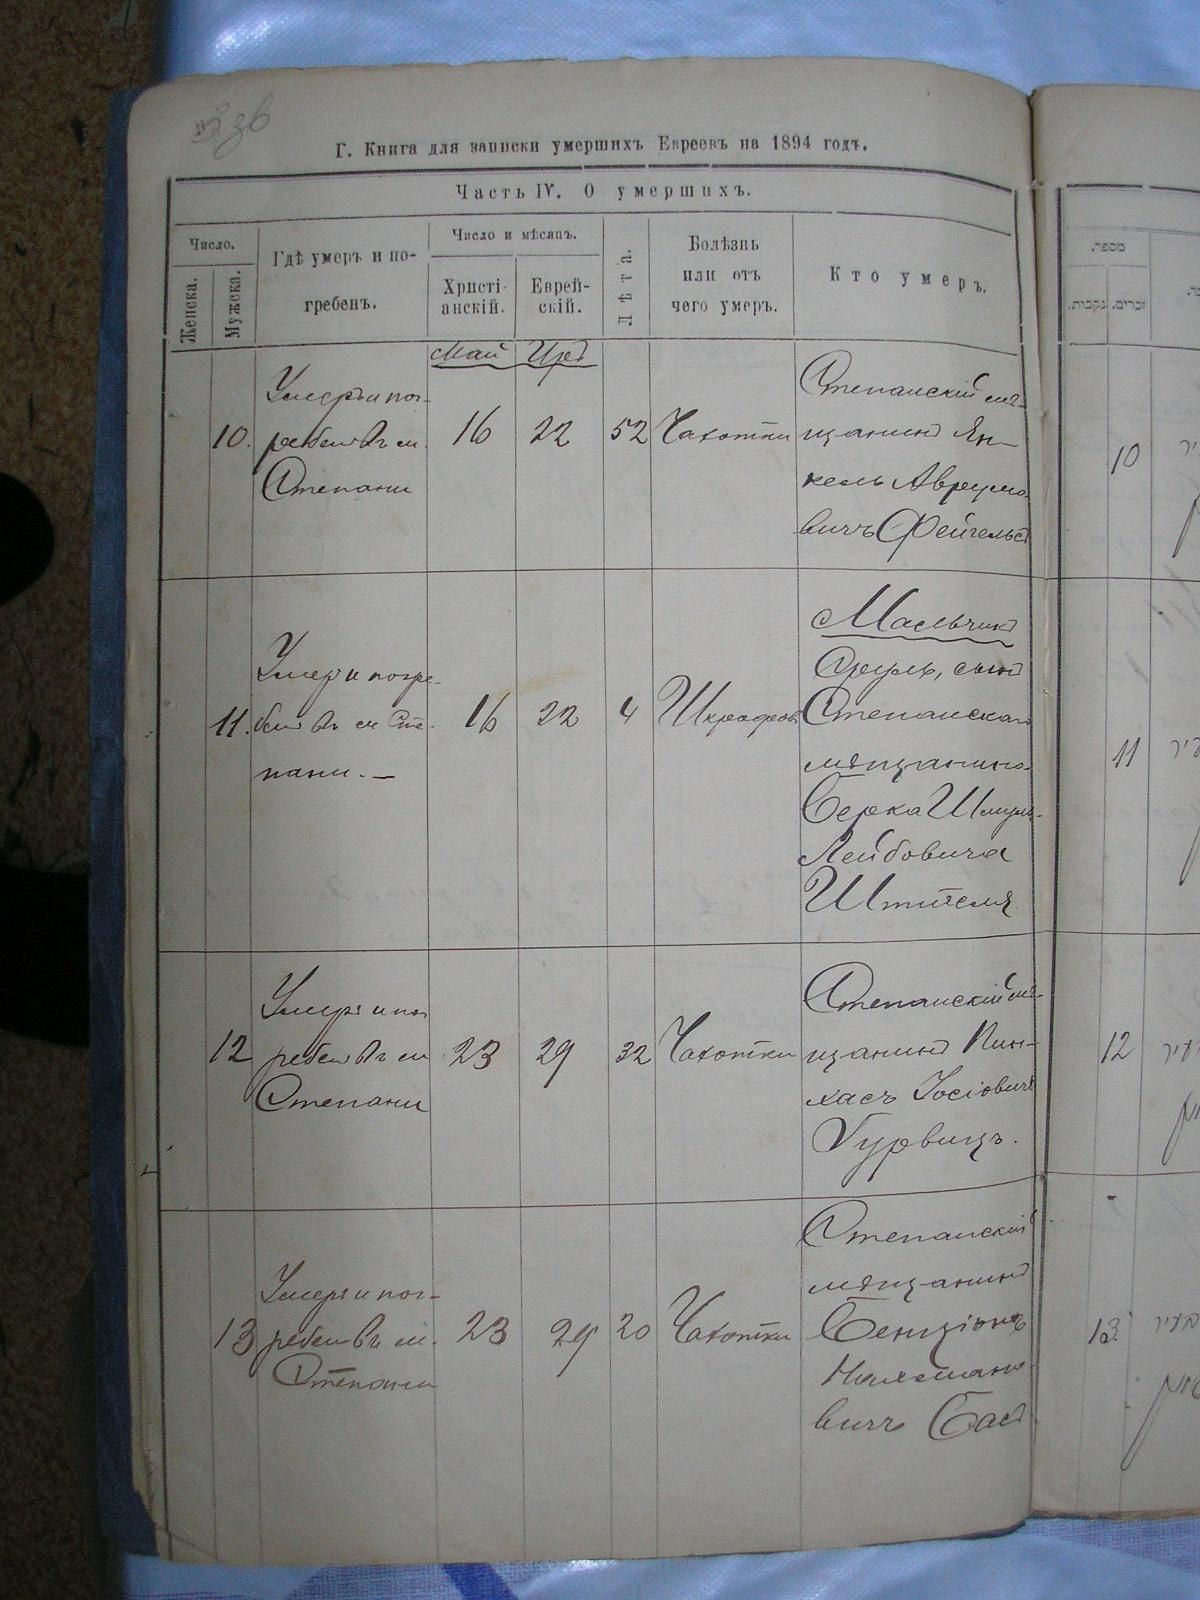 Г. Книга для записки умершихъ Евреевъ на 1894 годъ.
Часть IV. О умершихъ.
Число.
Женска.
Мужска.
Гдѣ умеръ и по-
гребенъ.
Число и мѣсяцъ.
Христі-
анскій.
Еврей-
скій.
Лѣта.
Болѣзнь
или отъ
чего умеръ.
Кто умеръ.
Май
10.
Умеръ и пог-
ребенъ въ м.
Степани
16
22
52
Чахотки
Степанскій мѣ-
щанинъ Ян-
кель Аврумо-
вичъ
11.
Умеръ и погре-
бенъ въ м Сте-
пани. —
16
22
4
Мальчикъ
Сруль, сынъ
Степанскаго
мѣщанина
Берка Шмуль-
Лейбовича
Штителя
12
Умеръ и пог
ребенъ въ м
Степани
23
29
32
Чахотки
Степанскій мѣ-
щанинъ Пин-
хасъ Іосіовичъ
Гурвицъ.
13
Умеръ и пог-
ребенъ въ м.
Степани
23
29
20
Чахотки
Степанскій
мѣщанинъ
Бенціонъ
Нахмано
вичъ Басъ
מספר.
נקבות.
זכרים.
10
11
12
13